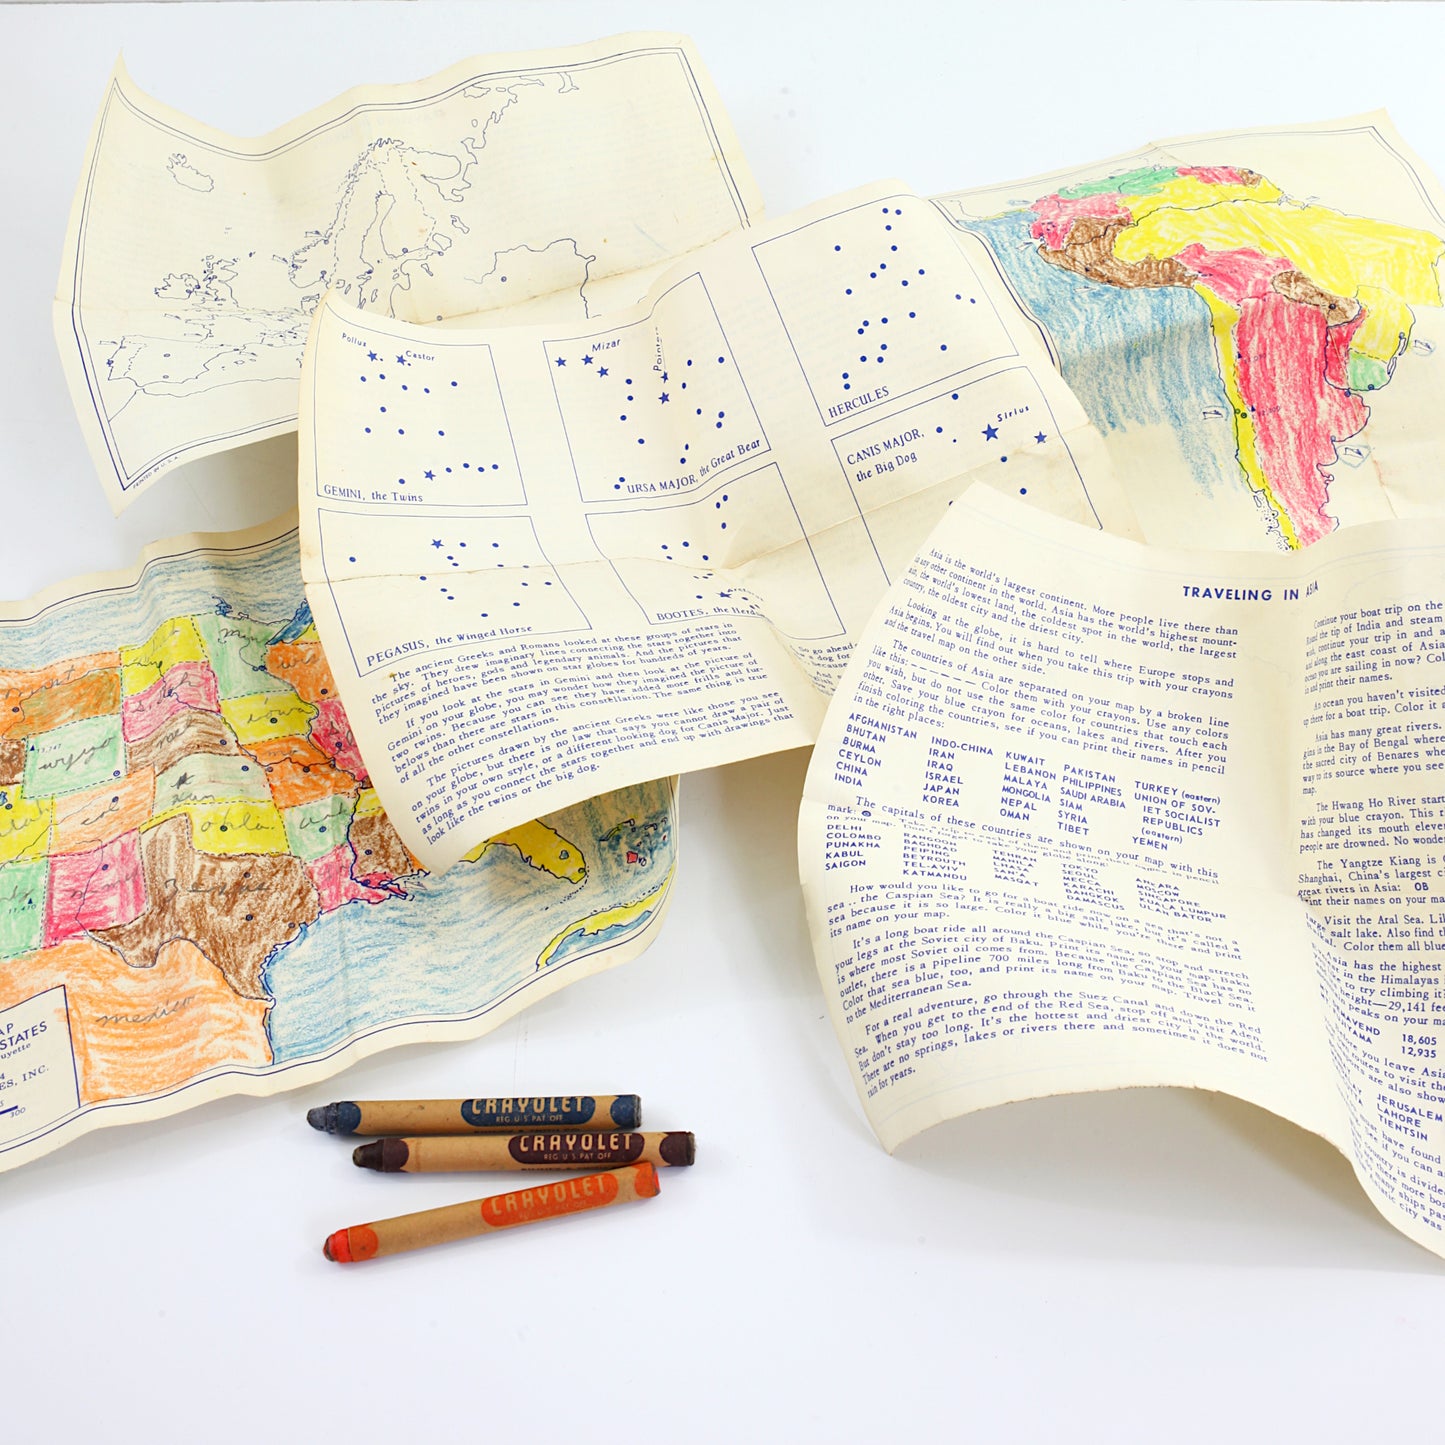 PRINTED IN U.S.A.
Pollux
Castor
GEMINI, the Twins
Mizar
Pointers
URSA MAJOR, the Great Bear
HERCULES
Sirius
CANIS MAJOR,
the Big Dog
PEGASUS, the Winged Horse
BOOTES, the Herds
The ancient Greeks and Romans looked at these groups of stars in
the sky. They drew imaginary lines connecting the stars together into
pictures of heroes, gods and legendary animals. And the pictures that
they imagined have been shown on star globes for hundreds of years.
If you look at the stars in Gemini and then look at the picture of
Gemini on your globe, you may wonder how they imagined the picture of
two twins. Because you can see they have added more frills and fur-
belows than there are stars in this constellation. The same thing is true
of all the other constellations.
The pictures drawn by the ancient Greeks were like those you see
on your globe, but there is no law that says you cannot draw a pair of
twins in your own style, or a different looking dog for Canis Major. Just
as long as you connect the stars together and end up with drawings that
look like the twins or the big dog.
So go ahead
a dog for
because
TRAVELING IN ASIA
Asia is the world's largest continent. More people live there than
in any other continent in the world. Asia has the world's highest mount-
ain, the world's lowest land, the coldest spot in the world, the largest
country, the oldest city and the driest city.
Looking at the globe, it is hard to tell where Europe stops and
Asia begins. You will find out when you take this trip with your crayons
and the travel map on the other side.
The countries of Asia are separated on your map by a broken line
like this: — — — — — Color them with your crayons. Use any colors
you wish, but do not use the same color for countries that touch each
other. Save your blue crayon for oceans, lakes and rivers. After you
finish coloring the countries, see if you can print their names in pencil
in the right places:
AFGHANISTAN
BHUTAN
BURMA
CEYLON
CHINA
INDIA
INDO-CHINA
IRAN
IRAQ
ISRAEL
JAPAN
KOREA
KUWAIT
LEBANON
MALAYA
MONGOLIA
NEPAL
OMAN
PAKISTAN
PHILIPPINES
SAUDI ARABIA
SIAM
SYRIA
TIBET
TURKEY (eastern)
UNION OF SOV-
IET SOCIALIST
REPUBLICS
(eastern)
YEMEN
The capitals of these countries are shown on your map with this
mark:
DELHI
COLOMBO
PUNAKHA
KABUL
SAIGON
RANGOON
BAGHDAD
PEIPING
BEYROUTH
TEL-AVIV
KATMANDU
TEHRAN
MANILA
SAN'A
MASQAT
TOKYO
SEOUL
MECCA
KARACHI
BANGKOK
DAMASCUS
ANKARA
MOSCOW
SINGAPORE
KUALA LUMPUR
ULAN BATOR
How would you like to go for a boat ride now on a sea that's not a
sea .. the Caspian Sea? It is really a big salt lake, but it's called a
sea because it is so large. Color it blue while you're there and print
its name on your map.
It's a long boat ride all around the Caspian Sea, so stop and stretch
your legs at the Soviet city of Baku. Print its name on your map. Baku
is where most Soviet oil comes from. Because the Caspian Sea has no
outlet, there is a pipeline 700 miles long from Baku to the Black Sea.
Color that sea blue, too, and print its name on your map. Travel on it
to the Mediterranean Sea.
For a real adventure, go through the Suez Canal and down the Red
Sea. When you get to the end of the Red Sea, stop off and visit Aden.
But don't stay too long. It's the hottest and driest city in the world.
There are no springs, lakes or rivers there and sometimes it does not
rain for years.
Continue your boat trip on the
the tip of India and steam
continue your trip in and a
along the east coast of Asia
you are sailing in now?
and print their names.
An ocean you haven't visited
up there for a boat trip. Color it
Asia has many great rivers.
in the Bay of Bengal where
the sacred city of Benares
way to its source where you see
map.
The Hwang Ho River
with your blue crayon. This
has changed its mouth eleven
people are drowned. No wonder
The Yangtze Kiang is
Shanghai, China's largest
great rivers in Asia: OB
Print their names on your
Visit the Aral Sea.
salt lake. Also find
Color them all blue
Asia has the highest
in the Himalayas
to try climbing it
height—29,141
peaks on your
18,605
12,935
you leave Asia
routes to visit the
are also shown
JERUSALEM
LAHORE
TIENTSIN
have found
if you can
country is divided
there more
many ships
Asiatic city was
min
wis
iowa
wyo
col
kan
okla
ark
Texas
mexico
STATES
INC.
CRAYOLET
REG. U.S. PAT. OFF.
CRAYOLET
REG. U.S. PAT. OFF.
CRAYOLET